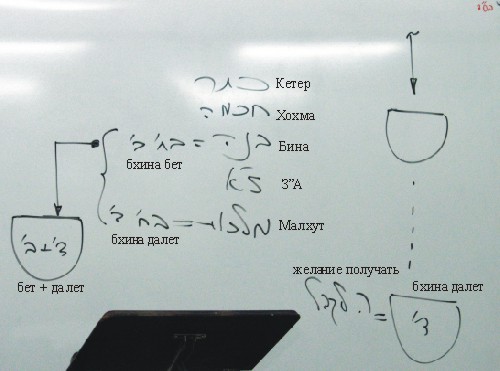 כתר Кетер
חכמה Хохма
בינה = בחי' ב' Бина
бхина бет
ז"א З”А
מלכות = בחי' ד' Малхут
бхина далет
ד'+ב'
бет + далет
желание получать
бхина далет
ר. לקבל =
ד'